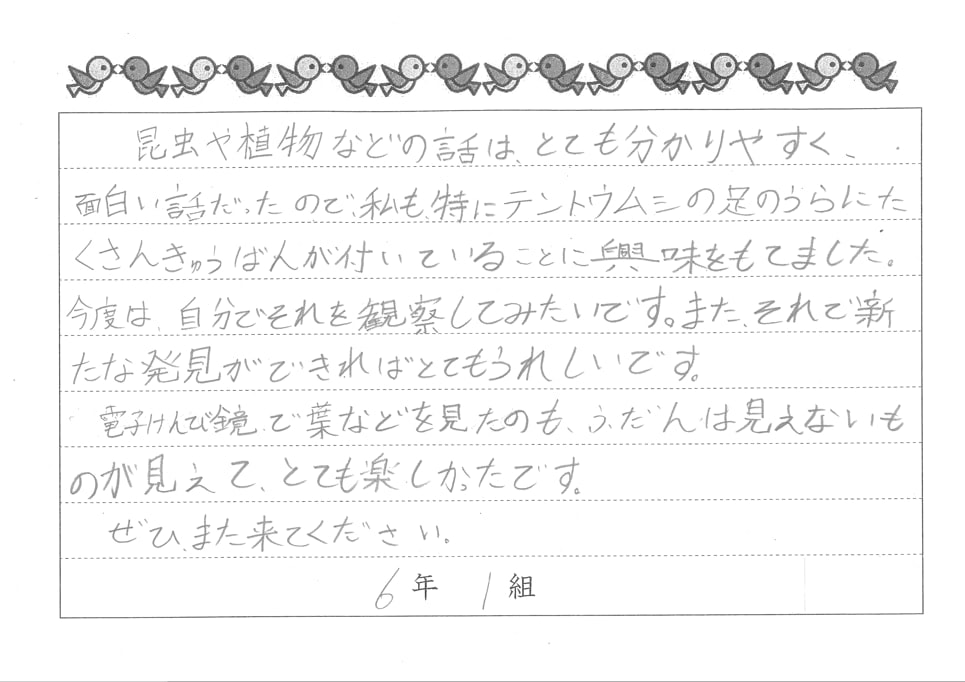 昆虫や植物などの話は、とても分かりやすく、
面白い話だったので、私も、特にテントウムシの足のうらにた
くさんきゅうばんが付いていることに興味をもてました。
今度は、自分でそれを観察してみたいです。また、それで新
たな発見ができればとてもうれしいです。
電子けんび鏡で葉などを見たのも、ふだんは見えないも
のが見えて、とても楽しかったです。
ぜひ、また来てください。
6年 1組